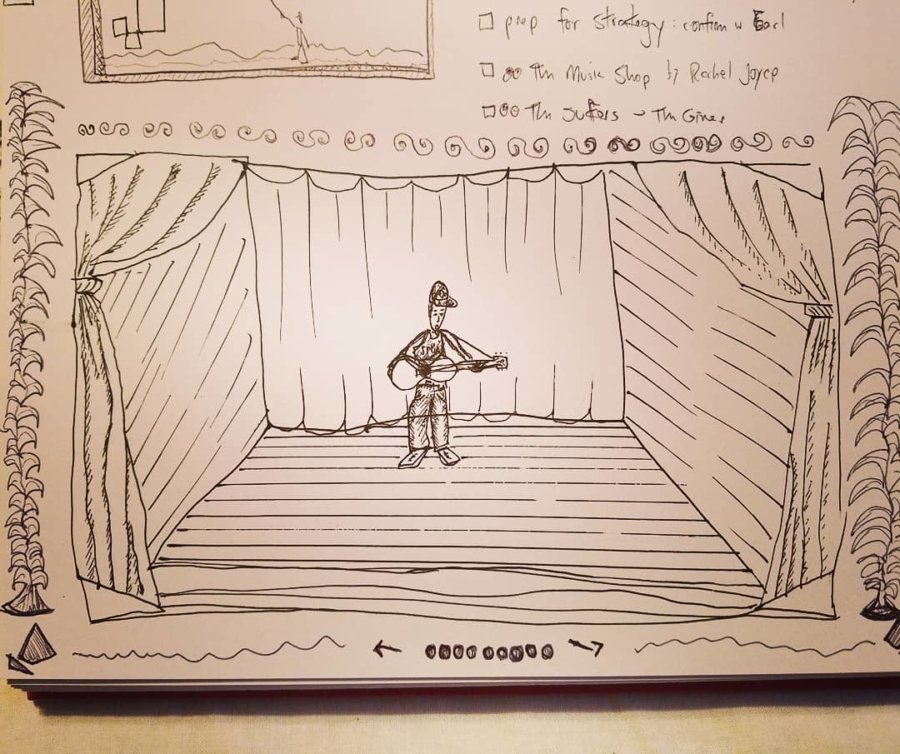 prep for strategy: confirm w Earl
The Music Shop by Rachel Joyce
The Surfers - The Gines